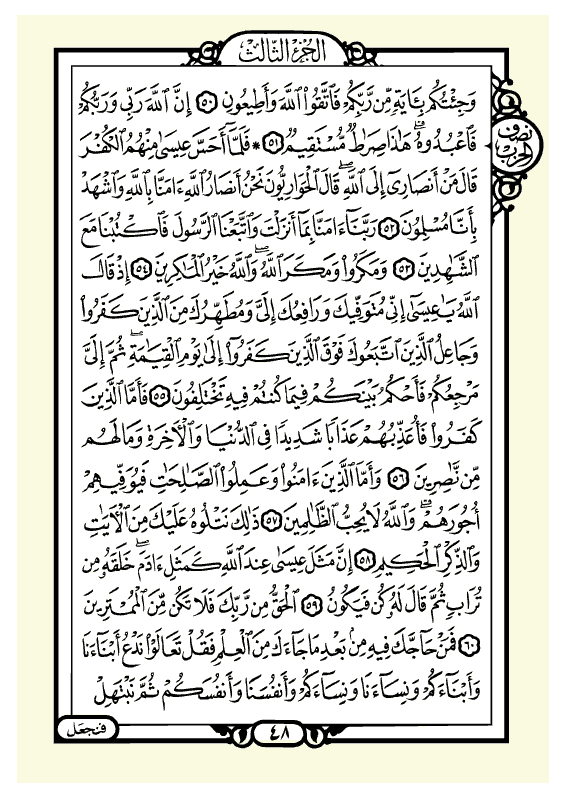 الجزء الثالث
نصف
الحزب
وَجِئْتُكُم بِـَٔايَةٍ مِّن رَّبِّكُمْ فَٱتَّقُوا۟ ٱللَّهَ وَأَطِيعُونِ ٥٠ إِنَّ ٱللَّهَ رَبِّى وَرَبُّكُمْ
فَٱعْبُدُوهُ ۗ هَٰذَا صِرَٰطٌ مُّسْتَقِيمٌ ٥١ * فَلَمَّآ أَحَسَّ عِيسَىٰ مِنْهُمُ ٱلْكُفْرَ
قَالَ مَنْ أَنصَارِىٓ إِلَى ٱللَّهِ ۖ قَالَ ٱلْحَوَارِيُّونَ نَحْنُ أَنصَارُ ٱللَّهِ ءَامَنَّا بِٱللَّهِ وَٱشْهَدْ
بِأَنَّا مُسْلِمُونَ ٥٢ رَبَّنَآ ءَامَنَّا بِمَآ أَنزَلْتَ وَٱتَّبَعْنَا ٱلرَّسُولَ فَٱكْتُبْنَا مَعَ
ٱلشَّٰهِدِينَ ٥٣ وَمَكَرُوا۟ وَمَكَرَ ٱللَّهُ ۖ وَٱللَّهُ خَيْرُ ٱلْمَٰكِرِينَ ٥٤ إِذْ قَالَ
ٱللَّهُ يَٰعِيسَىٰٓ إِنِّى مُتَوَفِّيكَ وَرَافِعُكَ إِلَىَّ وَمُطَهِّرُكَ مِنَ ٱلَّذِينَ كَفَرُوا۟
وَجَاعِلُ ٱلَّذِينَ ٱتَّبَعُوكَ فَوْقَ ٱلَّذِينَ كَفَرُوٓا۟ إِلَىٰ يَوْمِ ٱلْقِيَٰمَةِ ۖ ثُمَّ إِلَىَّ
مَرْجِعُكُمْ فَأَحْكُمُ بَيْنَكُمْ فِيمَا كُنتُمْ فِيهِ تَخْتَلِفُونَ ٥٥ فَأَمَّا ٱلَّذِينَ
كَفَرُوا۟ فَأُعَذِّبُهُمْ عَذَابًا شَدِيدًا فِى ٱلدُّنْيَا وَٱلْـَٔاخِرَةِ وَمَا لَهُم
مِّن نَّٰصِرِينَ ٥٦ وَأَمَّا ٱلَّذِينَ ءَامَنُوا۟ وَعَمِلُوا۟ ٱلصَّٰلِحَٰتِ فَيُوَفِّيهِمْ
أُجُورَهُمْ ۗ وَٱللَّهُ لَا يُحِبُّ ٱلظَّٰلِمِينَ ٥٧ ذَٰلِكَ نَتْلُوهُ عَلَيْكَ مِنَ ٱلْـَٔايَٰتِ
وَٱلذِّكْرِ ٱلْحَكِيمِ ٥٨ إِنَّ مَثَلَ عِيسَىٰ عِندَ ٱللَّهِ كَمَثَلِ ءَادَمَ ۖ خَلَقَهُۥ مِن
تُرَابٍ ثُمَّ قَالَ لَهُۥ كُن فَيَكُونُ ٥٩ ٱلْحَقُّ مِن رَّبِّكَ فَلَا تَكُن مِّنَ ٱلْمُمْتَرِينَ
٦٠ فَمَنْ حَآجَّكَ فِيهِ مِنۢ بَعْدِ مَا جَآءَكَ مِنَ ٱلْعِلْمِ فَقُلْ تَعَالَوْا۟ نَدْعُ أَبْنَآءَنَا
وَأَبْنَآءَكُمْ وَنِسَآءَنَا وَنِسَآءَكُمْ وَأَنفُسَنَا وَأَنفُسَكُمْ ثُمَّ نَبْتَهِلْ
فنجعل
٤٨